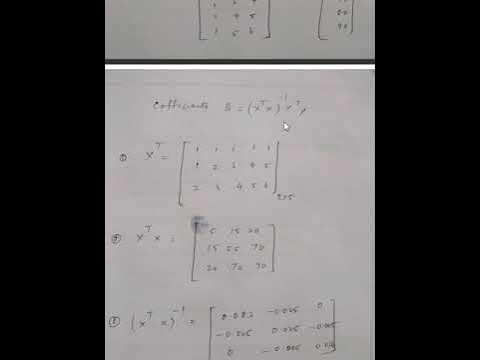 2 4 5
1 5 6
Coefficients B = (X^T X)^-1 X^T y
① X^T =
1 1 1 1 1
1 2 3 4 5
2 3 4 5 6
② X^T X =
5 15 20
15 55 70
20 70 90
③ (X^T X)^-1 =
-0.025 0
-0.025 0.025
0 -0.005